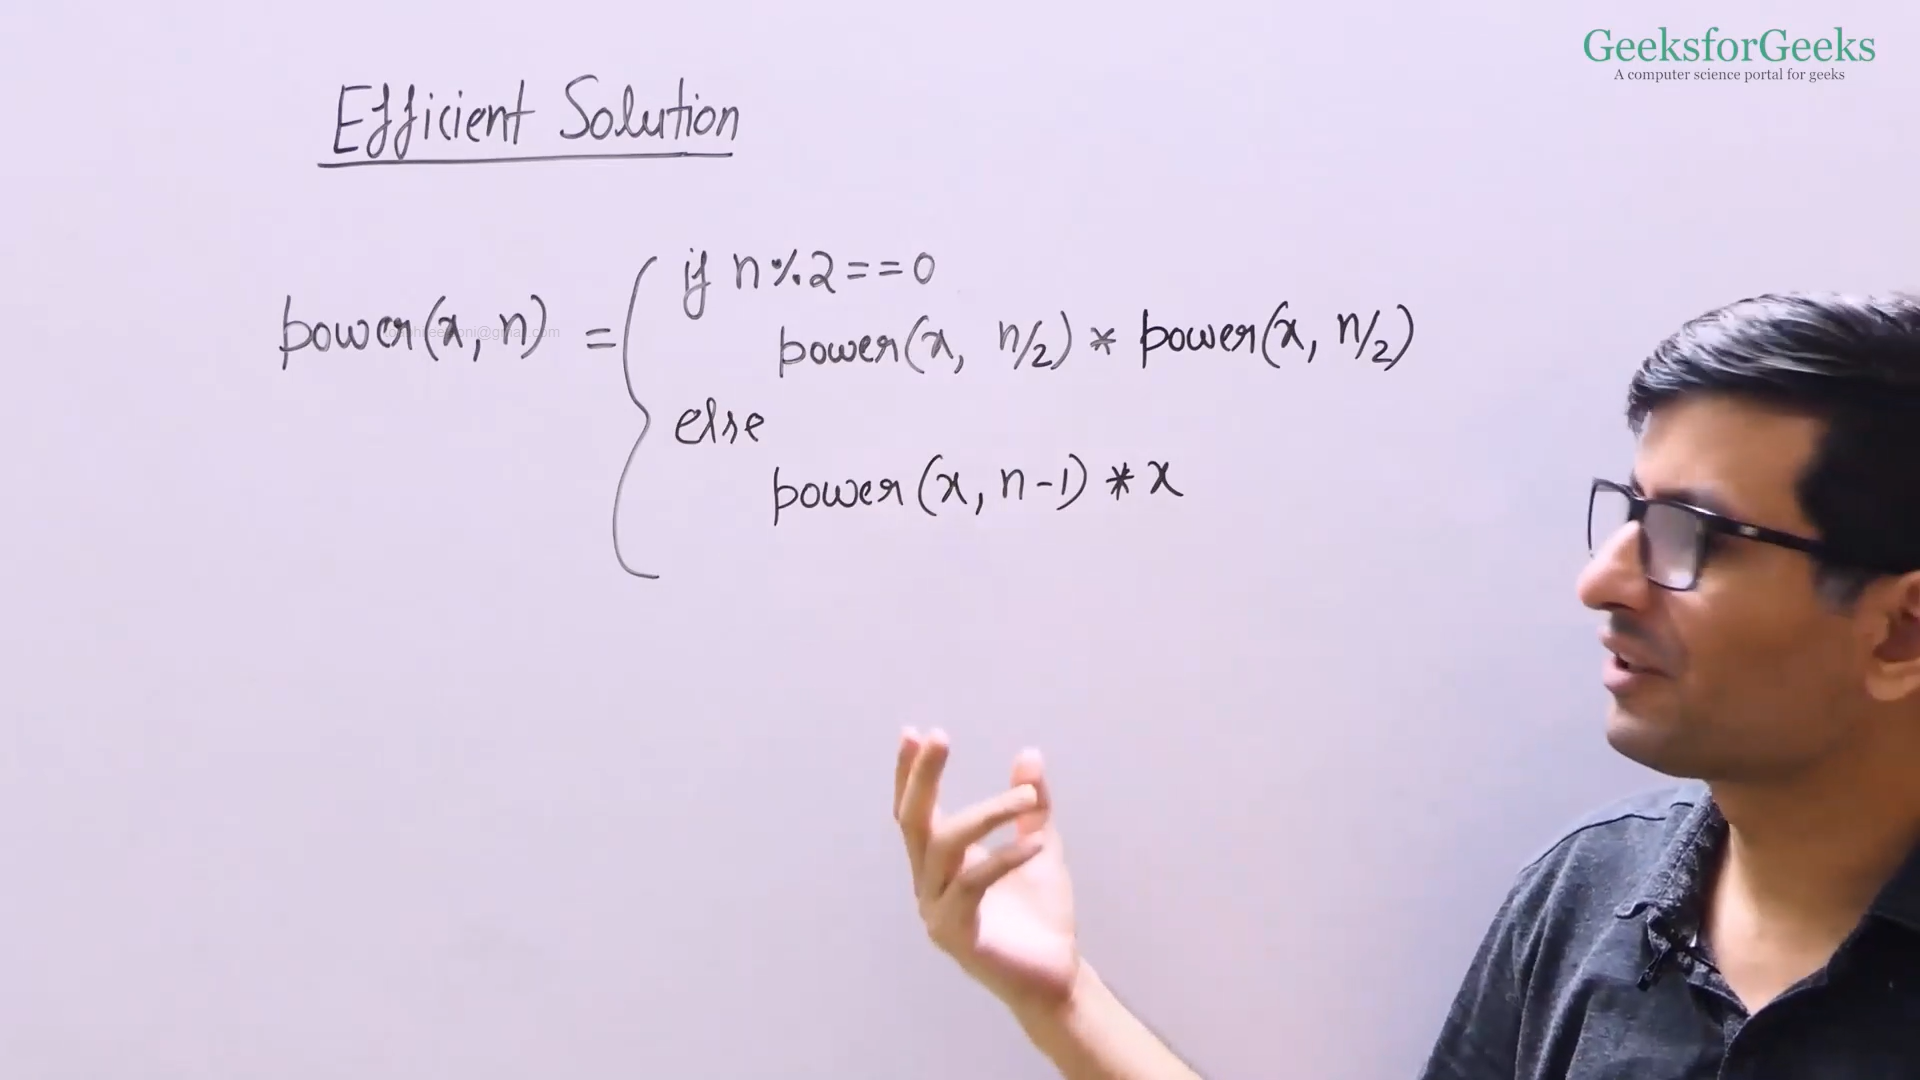 GeeksforGeeks
A computer science portal for geeks
Efficient Solution
if n%2==0
power(x, n) =
power(x, n/2) * power(x, n/2)
else
power(x, n-1) * x